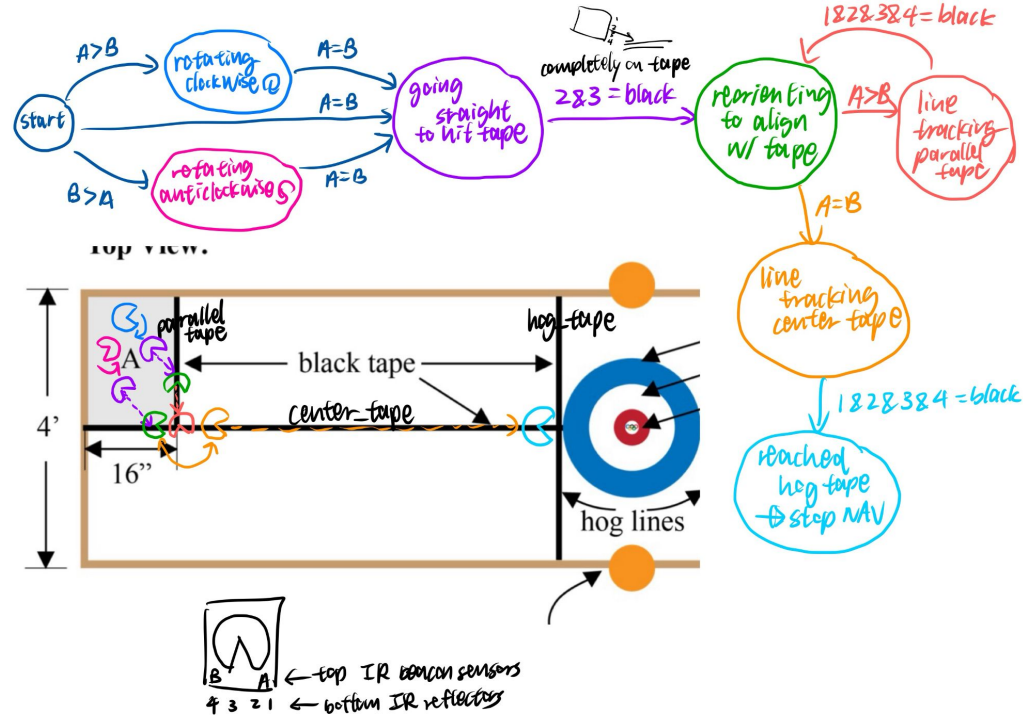 start
A>B
rotating
clockwise
A=B
A=B
B>A
rotating
anticlockwise
A=B
going
straight
to hit tape
1
2
3
4
completely on tape
2&3=black
reorienting
to align
w/ tape
1&2&3&4=black
A>B
line
tracking
parallel
tape
A=B
line
tracking
center tape
1&2&3&4=black
reached
hog tape
→ stop NAV
Top View:
parallel
tape
hog_tape
A
black tape
center_tape
4'
16"
hog lines
B A
← top IR beacon sensors
4 3 2 1 ← bottom IR reflectors